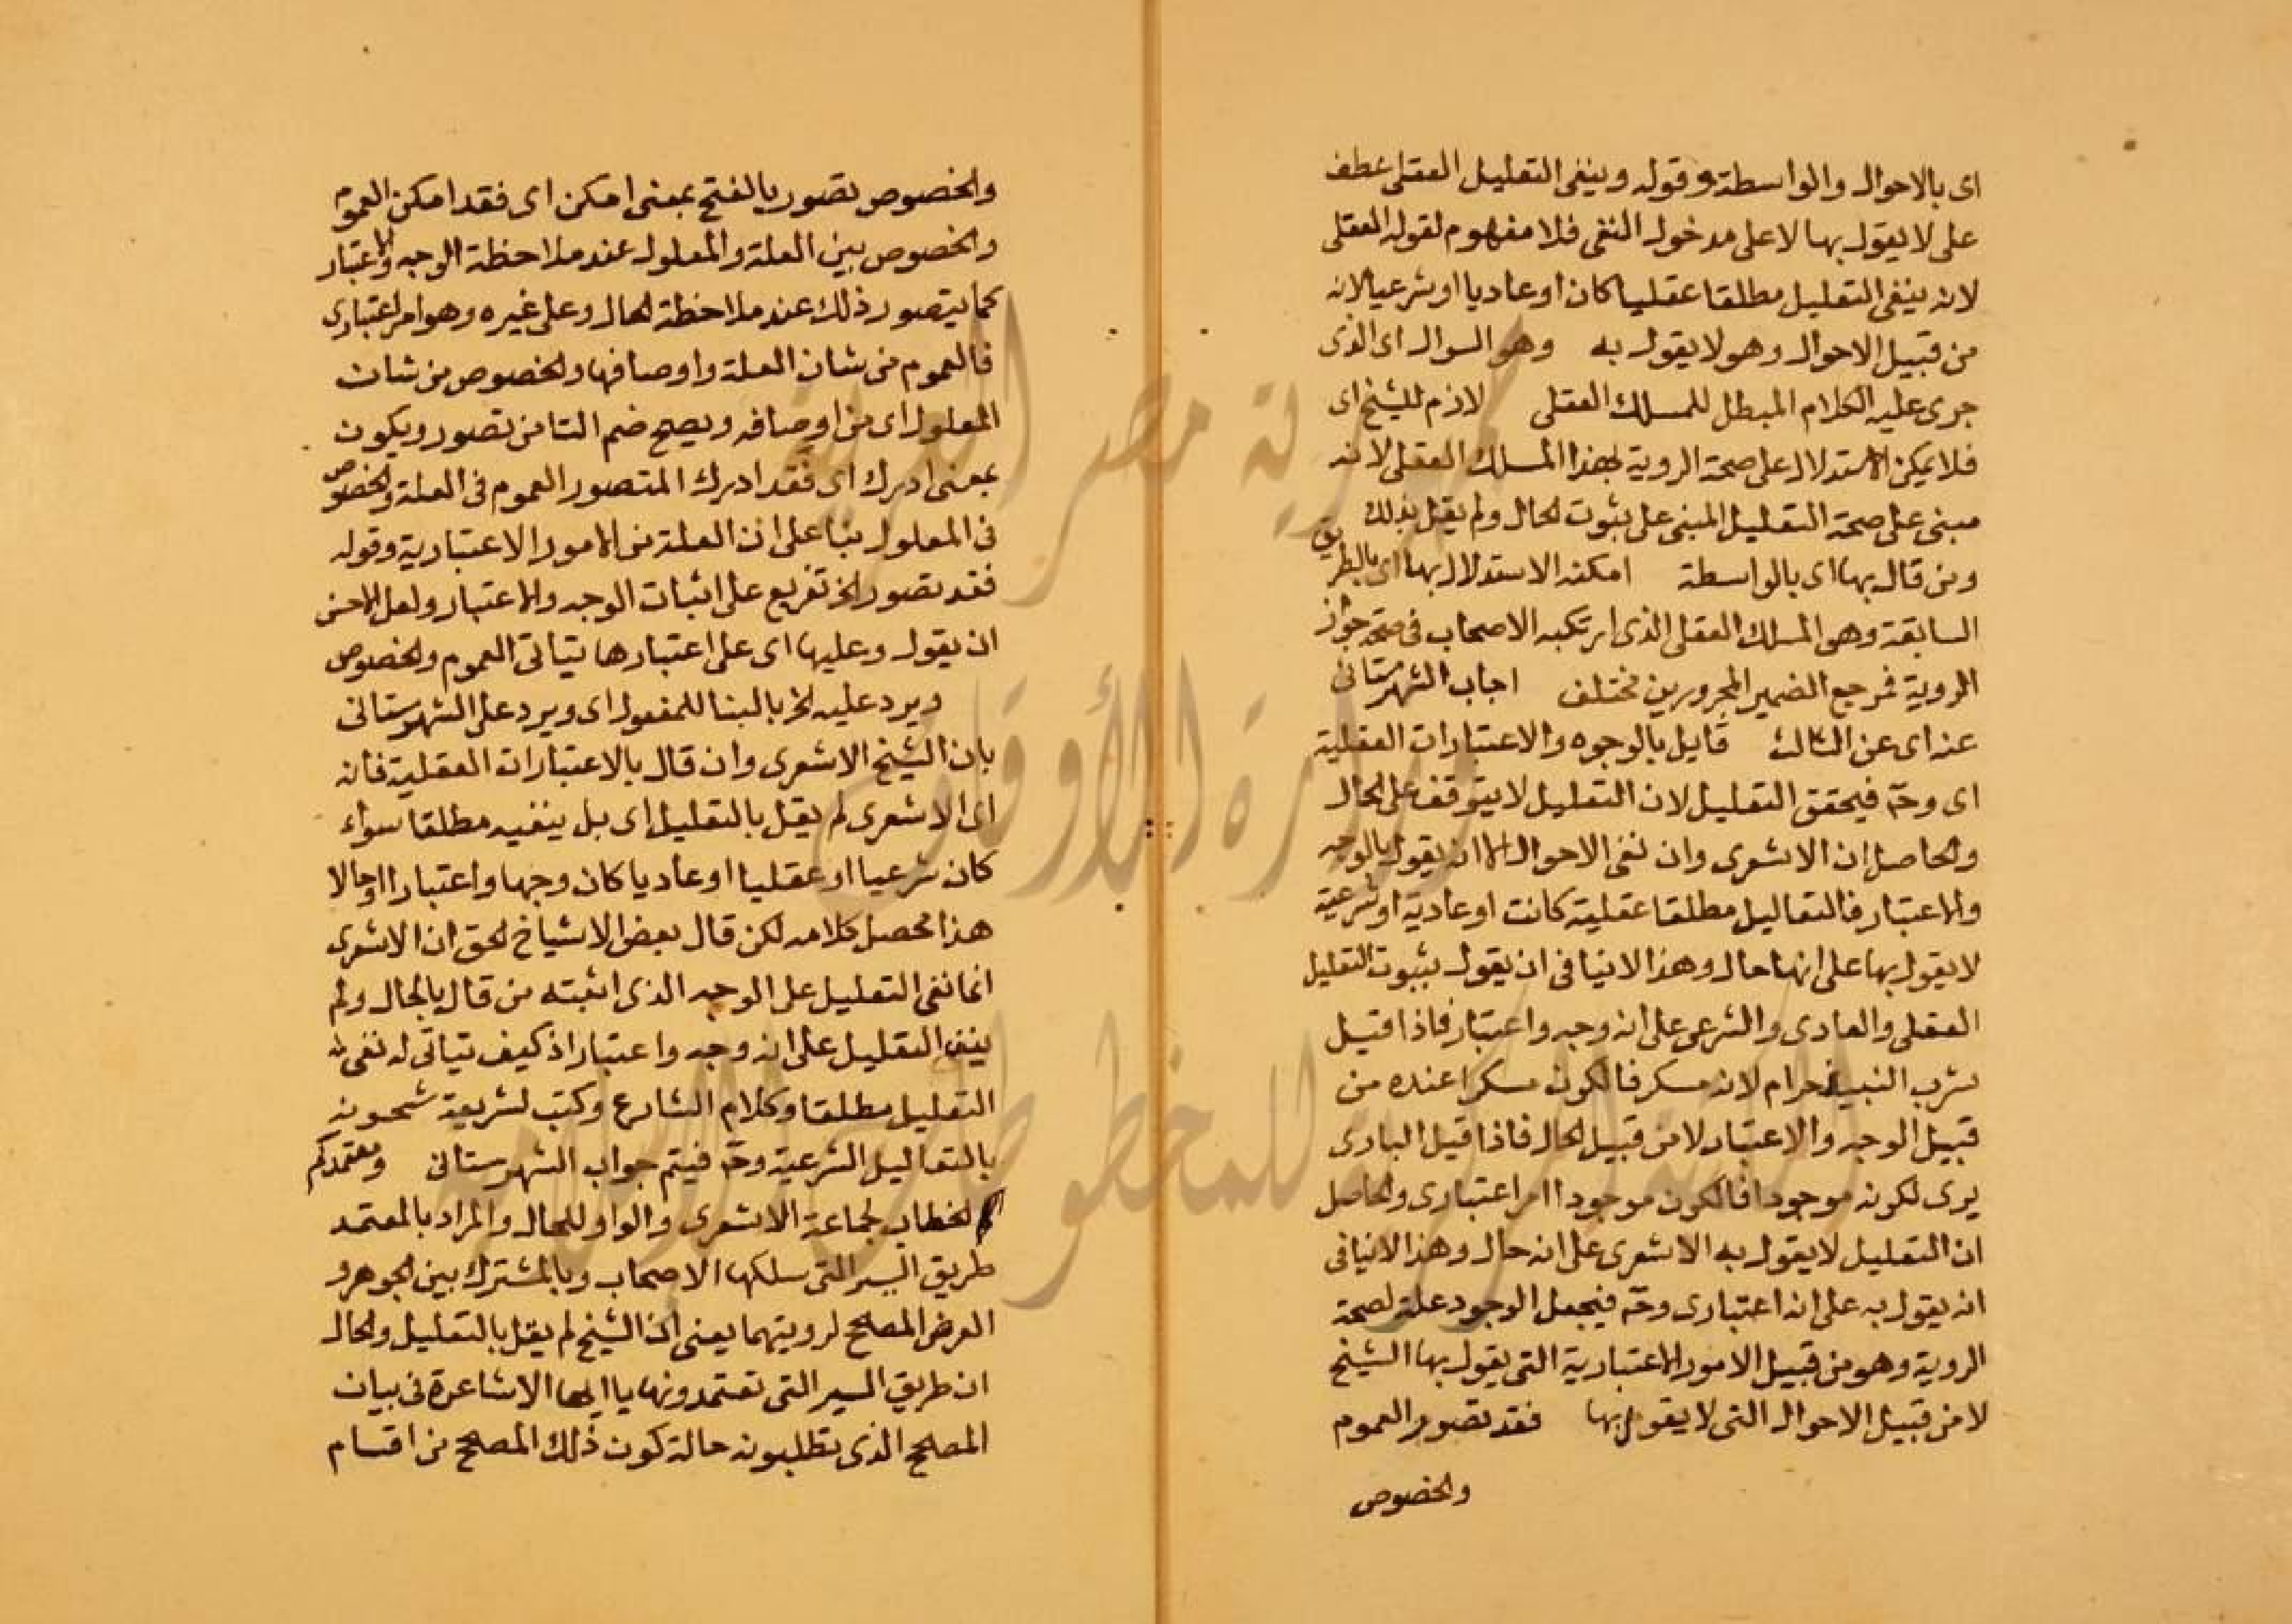 اى بالاحوال والواسطة وقوله وينفى التعليل العقلى عطف
على لا يقول بها لا على مدخول النفى فلا مفهوم لقوله العقلى
لانه ينفى التعليل مطلقا عقليا كان او عاديا او شرعيا لانه
من قبيل الاحوال وهو لا يقول به وهو السوال اى الذى
جرى عليه الكلام المبطل للمسلك العقلى لازم للشيخ اى
فلا يمكن الاستدلال على صحة الروية بهذا المسلك العقلى لانه
مبنى على صحة التعليل المبنى على ثبوت الحال ولم يقل بذلك
ومن قال بها اى بالواسطة امكنه الاستدلال بها اى بالطريق
السابقة وهو المسلك العقلى الذى ارتكبه الاصحاب فى صحة جواز
الروية فمرجع الضمير المجرورين مختلف اجاب الشهرستانى
عنه اى عن الثالث قايل بالوجوه والاعتبارات العقلية
اى وحّ فيحقق التعليل لان التعليل لا يتوقف على الحال
والحاصل ان الاشعرى وان نفى الاحوال الا انه يقول بالوجه
والاعتبار فالتعاليل مطلقا عقلية كانت او عادية او شرعية
لا يقول بها على انها حال وهذا لا ينافى ان يقول بثبوت التعليل
العقلى والعادى والشرعى على انه وجه واعتبار فاذا قيل
شرب النبيذ حرام لانه مسكر فالكون مسكرا عنده من
قبيل الوجه والاعتبار لا من قبيل الحال فاذا قيل البارى
يرى لكونه موجودا فالكون موجودا امر اعتبارى والحاصل
ان التعليل لا يقول به الاشعرى على انه حال وهذا لا ينافى
انه يقول به على انه اعتبارى وحّ فيجعل الوجود علة لصحة
الروية وهو من قبيل الامور الاعتبارية التى يقول بها الشيخ
لا من قبيل الاحوال التى لا يقول بها فقد تصور العموم
والخصوص
والخصوص تصور بالفتح بمعنى امكن اى فقد امكن العموم
والخصوص بين العلة والمعلول عند ملاحظة الوجه والاعتبار
كما يتصور ذلك عند ملاحظة الحال وعلى غيره وهو امر اعتبارى
فالعموم من شان العلة واوصافها والخصوص من شان
المعلول اى من اوصافه ويصح ضم التا من تصور ويكون
بمعنى ادرك اى فقد ادرك المتصور العموم فى العلة والخصوص
فى المعلول بنا على ان العلة من الامور الاعتبارية وقوله
فقد تصور الخ تفريع على اثبات الوجه والاعتبار ولعل الاحسن
ان يقول وعليها اى على اعتبارها يتاتى العموم والخصوص
ويرد عليه الخ بالبنا للمفعول اى ويرد على الشهرستانى
بان الشيخ الاشعرى وان قال بالاعتبارات العقلية فانه
اى الاشعرى لم يقل بالتعليل اى بل ينفيه مطلقا سواء
كان شرعيا او عقليا او عاديا كان وجها واعتبارا او حالا
هذا محصل كلامه لكن قال بعض الاشياخ الحق ان الاشعرى
انما نفى التعليل على الوجه الذى اثبته من قال بالحال ولم
ينف التعليل على انه وجه واعتبار اذ كيف يتاتى له نفى
التعليل مطلقا وكلام الشارع وكتب الشريعة مشحونه
بالتعاليل الشرعية وحّ فيتم جواب الشهرستانى ومعتمدكم
الخطاب لجماعة الاشعرى والواو للحال والمراد بالمعتمد
طريق السبر التى سلكها الاصحاب وبالمشترك بين الجوهر و
العرض المصلح لرويتهما يعنى ان الشيخ لم يقل بالتعليل والحال
ان طريق السبر التى تعتمدونها يا ايها الاشاعرة فى بيان
المصلح الذى تطلبونه حالة كون ذلك المصلح من اقسام